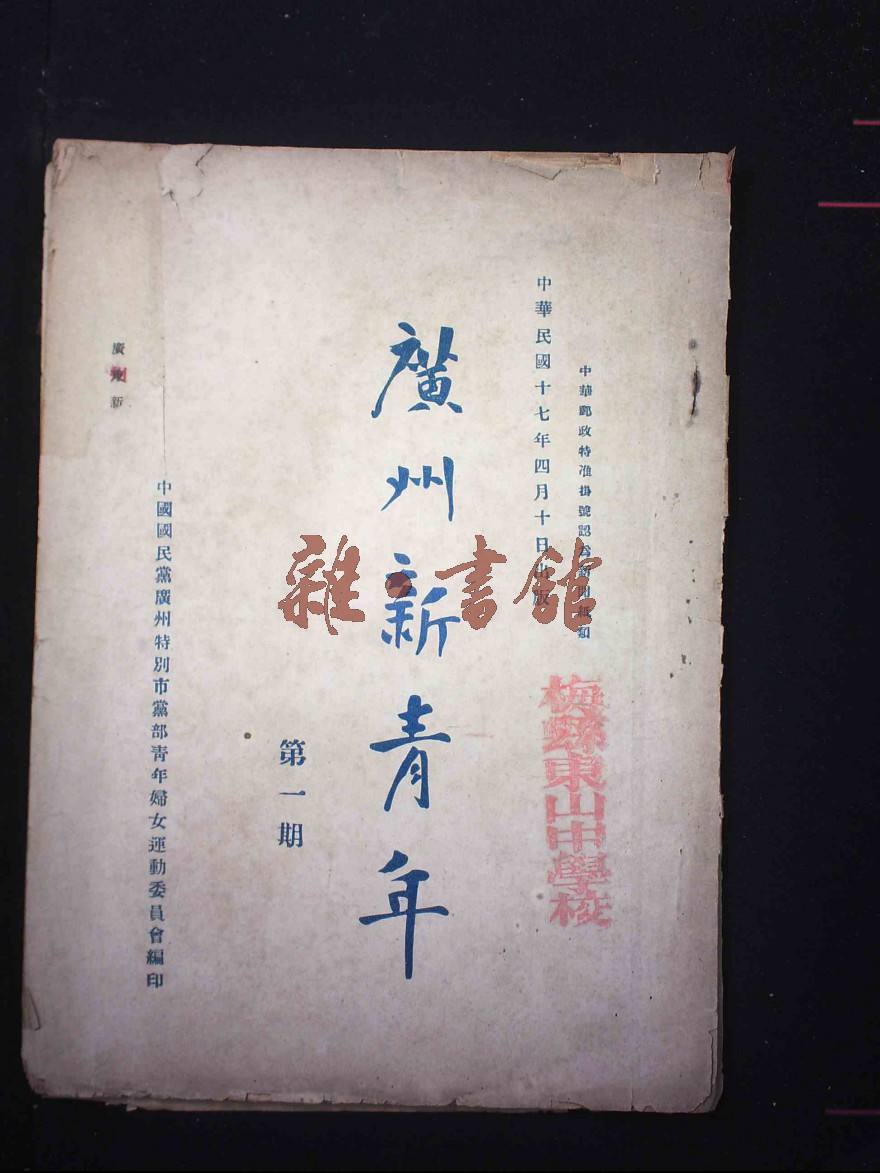 中華郵政特准掛號認爲新聞紙類
中華民國十七年四月十日出版
梅縣東山中學校
廣州新青年
第一期
中國國民黨廣州特別市黨部青年婦女運動委員會編印
廣州新
雜書館